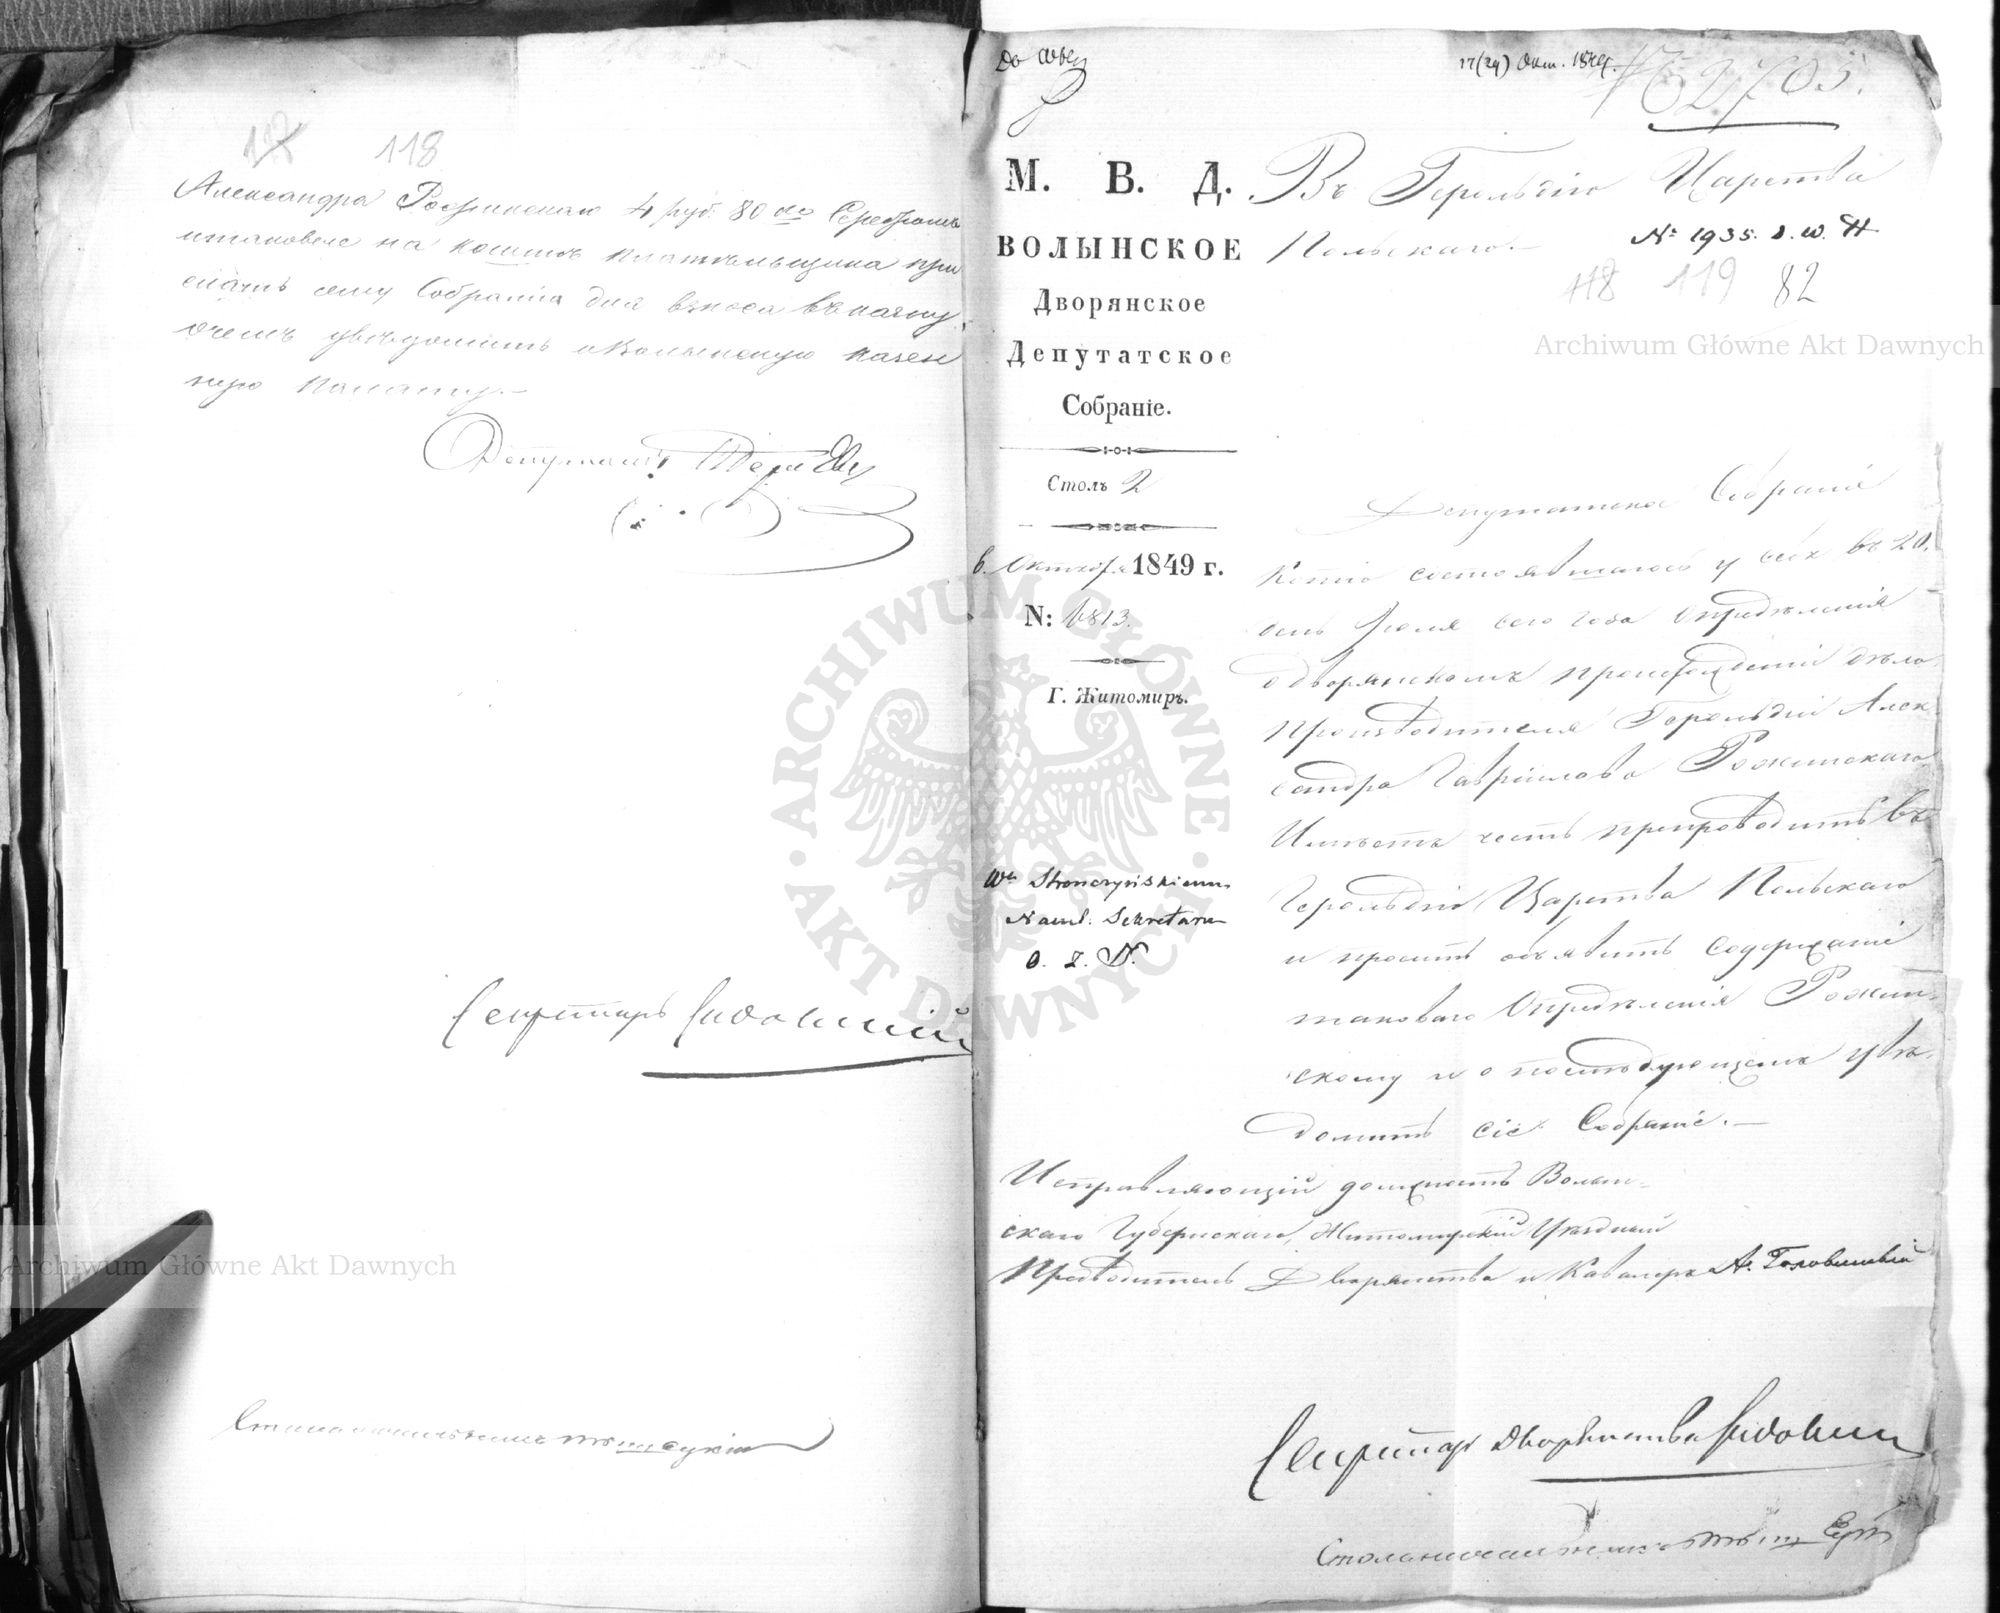 118
Александра Рожинскаго 4 руб. 80 ко Серебромъ
таковые на коштъ плательщика при
слать сему Собранію для взноса въ казну,
о чемъ увѣдомить и Волынскую казен
ную Палату.—
Депутатъ
Секретарь
Столоначальникъ
17 (29) Окт. 1849.
2705.
М. В. Д.
ВОЛЫНСКОЕ
Дворянское
Депутатское
Собраніе.
Столъ 2
6. Октября 1849 г.
N: 6813.
Г. Житомиръ.
Wu Stronczyńskiemu
Nacz. Sekretarz
Въ Герольдію Царства
Польскаго.—
№ 1935.
118 119 82
Депутатское Собраніе
Копію состоявшагося у сего въ 20.
день Іюля сего года Опредѣленія
о дворянскомъ происхожденіи дѣло
производителя Герольдіи Алек
сандра Гавріилова Рожинскаго
Имѣетъ честь препроводить въ
Герольдію Царства Польскаго
и проситъ объявить содержаніе
таковаго Опредѣленія Рожин-
скому и о послѣдующемъ увѣ-
домить сіе Собраніе.—
Исправляющій должность Волын-
скаго Губернскаго, Житомирскій Уѣздный
Предводитель Дворянства и Кавалеръ А.
Секретарь Дворянства
Столоначальникъ
Archiwum Główne Akt Dawnych
Archiwum Główne Akt Dawnych
ARCHIWUM GŁÓWNE · AKT DAWNYCH ·